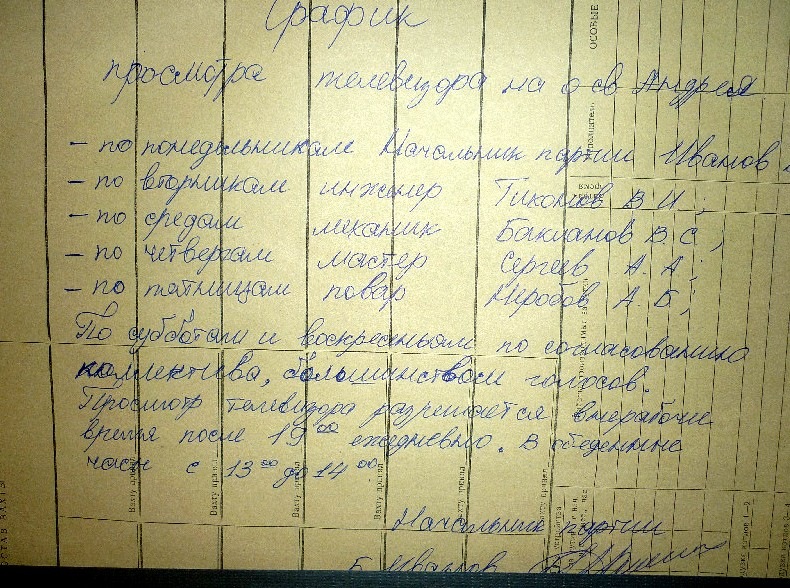 График
просмотра телевизора на о св Андрея
– по понедельникам Начальник партии Иванов
– по вторникам инженер Тихонов В И;
– по средам механик Бакланов В.С,
– по четвергам мастер Сергеев А. А;
– по пятницам повар А. Б;
По субботам и воскресеньям по согласованию
коллектива, большинством голосов.
Просмотр телевизора разрешается внерабочие
время после 19 00 ежедневно. В обеденные
часы с 13 00 до 14 00
Начальник партии
Б Иванов
ОСОБЫЕ
Вахту принял
Вахту принял
Вахту принял
Вахту принял
Вахту принял